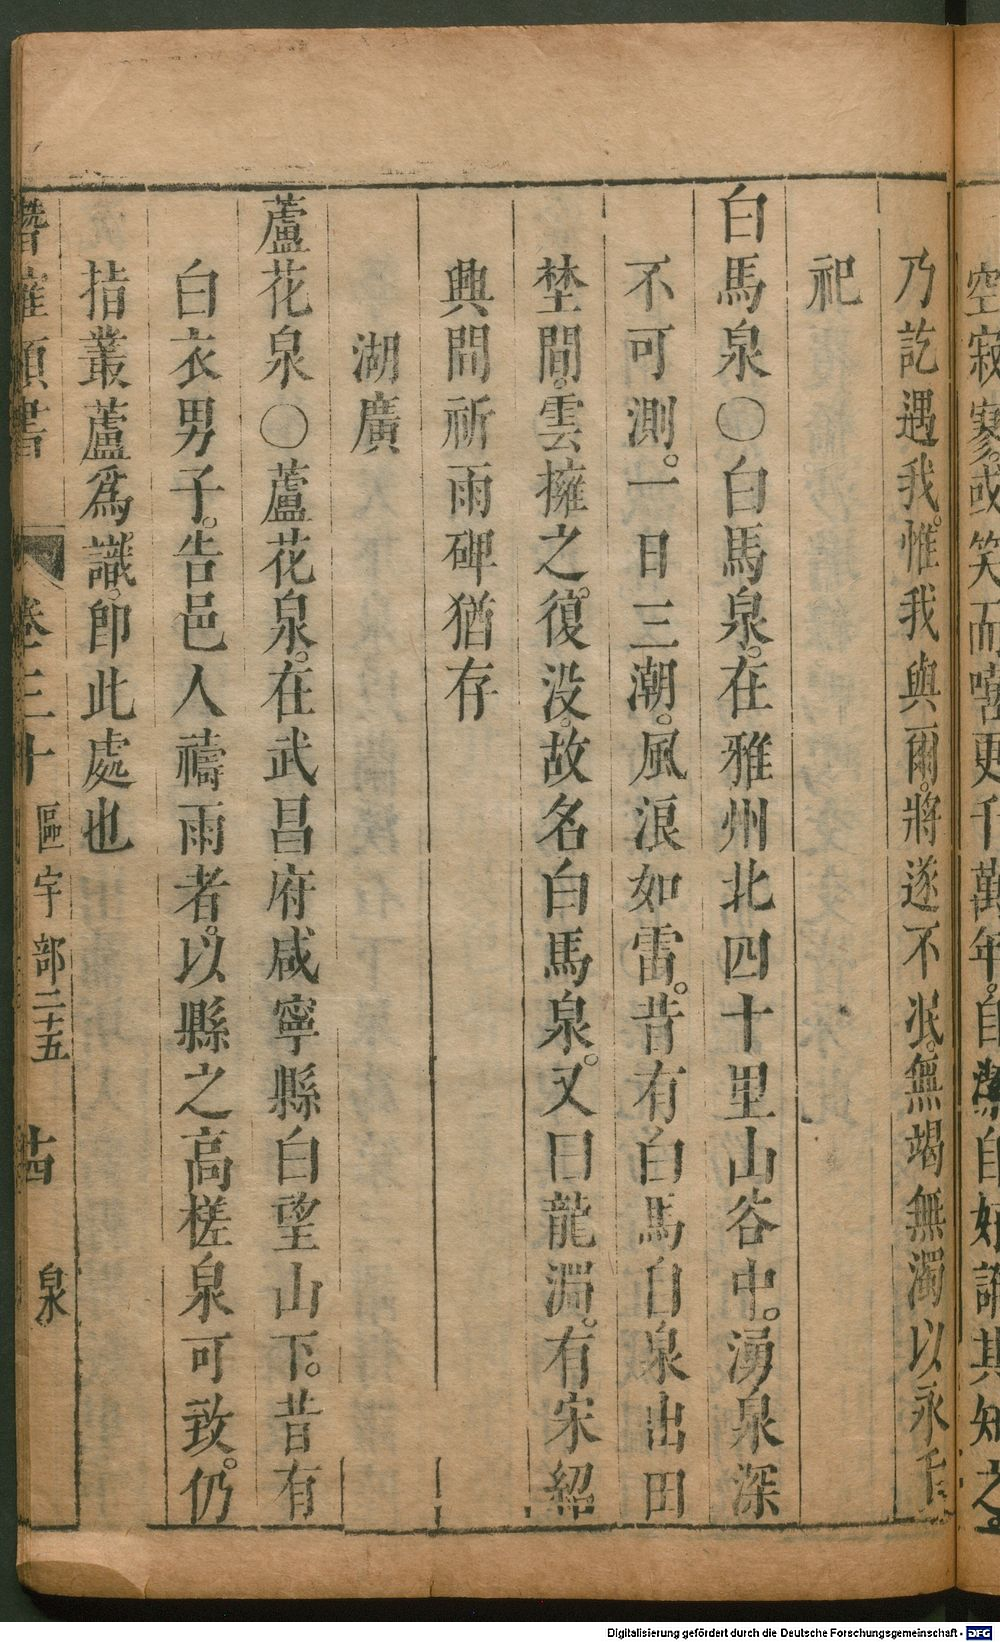 空寂寥。或笑而嘻更千萬年。自潔自好謂其知之
乃訖遇我。惟我與爾。將遂不泯。無竭無濁以永千
祀
白馬泉○白馬泉。在雅州北四十里山谷中。湧泉深
不可測。一日三潮。風浪如雷。昔有白馬自泉出田
埜間。雲擁之。復没。故名白馬泉。又曰龍淵。有宋紹
興間祈雨碑猶存
湖廣
蘆花泉○蘆花泉。在武昌府咸寧縣白望山下。昔有
白衣男子。告邑人禱雨者。以縣之高槎泉可致。仍
指叢蘆爲識。即此處也
潛確類書 卷三十 區宇部二十五 十四 泉
Digitalisierung gefördert durch die Deutsche Forschungsgemeinschaft - DFG